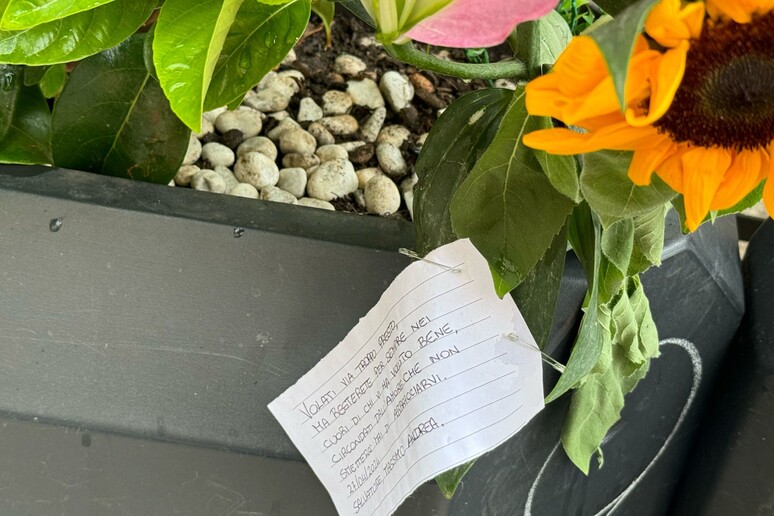 VOLATI VIA TROPPO PRESTO,
MA RESTERETE PER SEMPRE NEI
CUORI DI CHI VI HA VOLUTO BENE,
CIRCONDATI DALL'AMORE CHE NON
SMETTERÀ MAI DI ABBRACCIARVI.
21/04/2024
SALVATORE, TOMMASO, ANDREA.